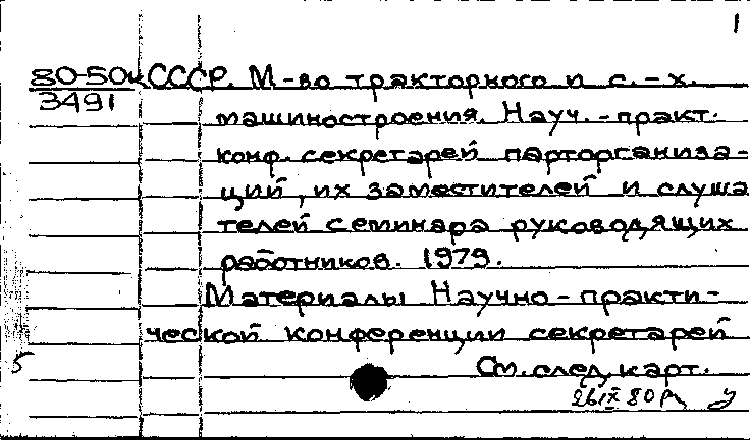 1
80-50к СССР. М-во тракторного и с.-х.
3491
машиностроения. Науч.-практ.
конф. секретарей парторганиза-
ций, их заместителей и слуша
телей семинара руководящих
работников. 1979.
Материалы Научно-практи-
ческой конференции секретарей
5
См. след. карт.
26 IX 80